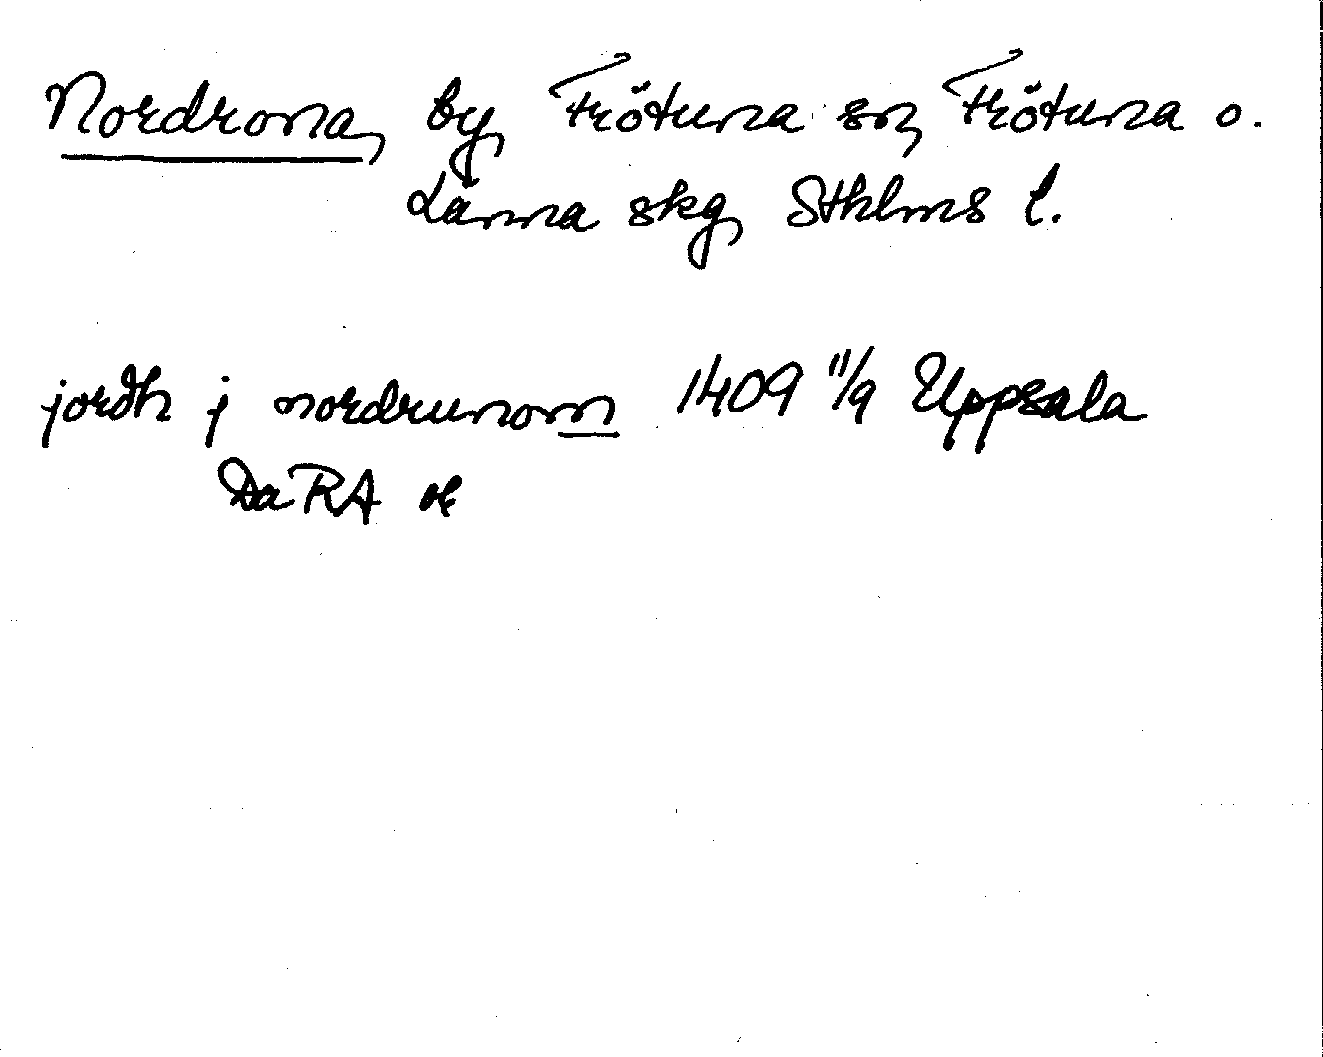 Nordrona, by, Frötuna sn, Frötuna o.
Länna skg, Sthlms l.
jordh j nordrunom 1409 11/9 Uppsala
DaRA or